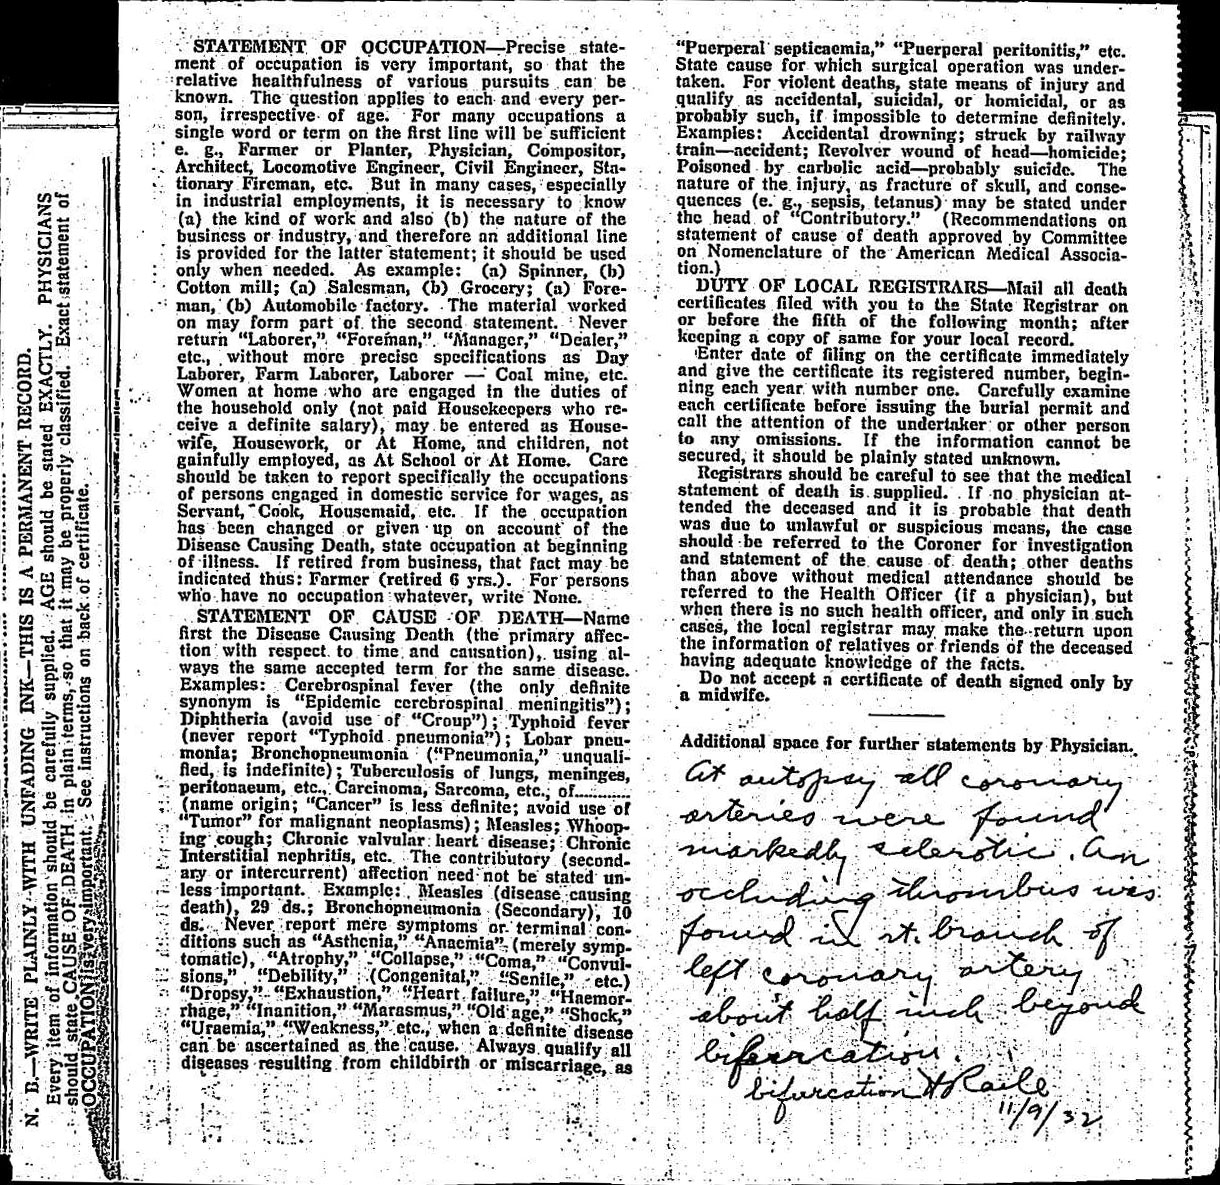 STATEMENT OF OCCUPATION—Precise state-
ment of occupation is very important, so that the
relative healthfulness of various pursuits can be
known. The question applies to each and every per-
son, irrespective of age. For many occupations a
single word or term on the first line will be sufficient
e. g., Farmer or Planter, Physician, Compositor,
Architect, Locomotive Engineer, Civil Engineer, Sta-
tionary Fireman, etc. But in many cases, especially
in industrial employments, it is necessary to know
(a) the kind of work and also (b) the nature of the
business or industry, and therefore an additional line
is provided for the latter statement; it should be used
only when needed. As example: (a) Spinner, (b)
Cotton mill; (a) Salesman, (b) Grocery; (a) Fore-
man, (b) Automobile factory. The material worked
on may form part of the second statement. Never
return "Laborer," "Foreman," "Manager," "Dealer,"
etc., without more precise specifications as Day
Laborer, Farm Laborer, Laborer — Coal mine, etc.
Women at home who are engaged in the duties of
the household only (not paid Housekeepers who re-
ceive a definite salary), may be entered as House-
wife, Housework, or At Home, and children, not
gainfully employed, as At School or At Home. Care
should be taken to report specifically the occupations
of persons engaged in domestic service for wages, as
Servant, Cook, Housemaid, etc. If the occupation
has been changed or given up on account of the
Disease Causing Death, state occupation at beginning
of illness. If retired from business, that fact may be
indicated thus: Farmer (retired 6 yrs.). For persons
who have no occupation whatever, write None.
STATEMENT OF CAUSE OF DEATH—Name
first the Disease Causing Death (the primary affec-
tion with respect to time and causation), using al-
ways the same accepted term for the same disease.
Examples: Cerebrospinal fever (the only definite
synonym is "Epidemic cerebrospinal meningitis");
Diphtheria (avoid use of "Croup"); Typhoid fever
(never report "Typhoid pneumonia"); Lobar pneu-
monia; Bronchopneumonia ("Pneumonia," unquali-
fied, is indefinite); Tuberculosis of lungs, meninges,
peritonaeum, etc., Carcinoma, Sarcoma, etc., of...........
(name origin; "Cancer" is less definite; avoid use of
"Tumor" for malignant neoplasms); Measles; Whoop-
ing cough; Chronic valvular heart disease; Chronic
Interstitial nephritis, etc. The contributory (second-
ary or intercurrent) affection need not be stated un-
less important. Example: Measles (disease causing
death), 29 ds.; Bronchopneumonia (Secondary), 10
ds. Never report mere symptoms or terminal con-
ditions such as "Asthenia," "Anaemia" (merely symp-
tomatic), "Atrophy," "Collapse," "Coma," "Convul-
sions," "Debility," (Congenital," "Senile," etc.)
"Dropsy," "Exhaustion," "Heart failure," "Haemor-
rhage," "Inanition," "Marasmus," "Old age," "Shock,"
"Uraemia," "Weakness," etc., when a definite disease
can be ascertained as the cause. Always qualify all
diseases resulting from childbirth or miscarriage, as
"Puerperal septicaemia," "Puerperal peritonitis," etc.
State cause for which surgical operation was under-
taken. For violent deaths, state means of injury and
qualify as accidental, suicidal, or homicidal, or as
probably such, if impossible to determine definitely.
Examples: Accidental drowning; struck by railway
train—accident; Revolver wound of head—homicide;
Poisoned by carbolic acid—probably suicide. The
nature of the injury, as fracture of skull, and conse-
quences (e. g., sepsis, tetanus) may be stated under
the head of "Contributory." (Recommendations on
statement of cause of death approved by Committee
on Nomenclature of the American Medical Associa-
tion.)
DUTY OF LOCAL REGISTRARS—Mail all death
certificates filed with you to the State Registrar on
or before the fifth of the following month; after
keeping a copy of same for your local record.
Enter date of filing on the certificate immediately
and give the certificate its registered number, begin-
ning each year with number one. Carefully examine
each certificate before issuing the burial permit and
call the attention of the undertaker or other person
to any omissions. If the information cannot be
secured, it should be plainly stated unknown.
Registrars should be careful to see that the medical
statement of death is supplied. If no physician at-
tended the deceased and it is probable that death
was due to unlawful or suspicious means, the case
should be referred to the Coroner for investigation
and statement of the cause of death; other deaths
than above without medical attendance should be
referred to the Health Officer (if a physician), but
when there is no such health officer, and only in such
cases, the local registrar may make the return upon
the information of relatives or friends of the deceased
having adequate knowledge of the facts.
Do not accept a certificate of death signed only by
a midwife.
Additional space for further statements by Physician.
At autopsy all coronary
arteries were found
markedly sclerotic. An
occluding thrombus was
found in rt. branch of
left coronary artery
about half inch beyond
bifurcation.
bifurcation
11/9/32
N. B.—WRITE PLAINLY WITH UNFADING INK—THIS IS A PERMANENT RECORD.
Every item of information should be carefully supplied. AGE should be stated EXACTLY. PHYSICIANS
should state CAUSE OF DEATH in plain terms, so that it may be properly classified. Exact statement of
OCCUPATION is very important. See instructions on back of certificate.